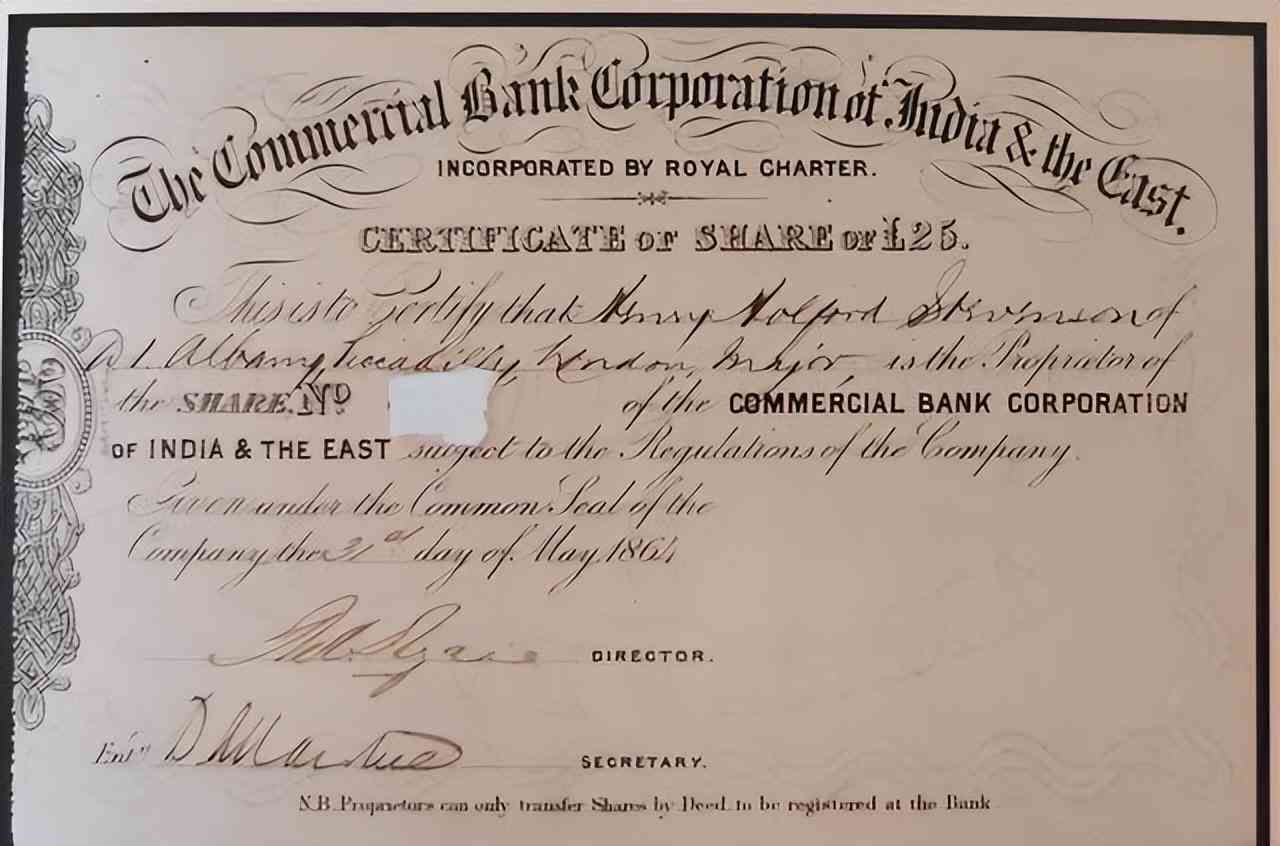 The Commercial Bank Corporation of India & the East.
INCORPORATED BY ROYAL CHARTER.
CERTIFICATE OF SHARE OF £25.
This is to Certify that Henry Holford Stevenson of
A 1. Albany, Piccadilly, London, Major, is the Proprietor of
the SHARE, No of the COMMERCIAL BANK CORPORATION
OF INDIA & THE EAST subject to the Regulations of the Company.
Given under the Common Seal of the
Company the 31st day of May, 1864
DIRECTOR.
Entd SECRETARY.
N.B. Proprietors can only transfer Shares by Deed to be registered at the Bank